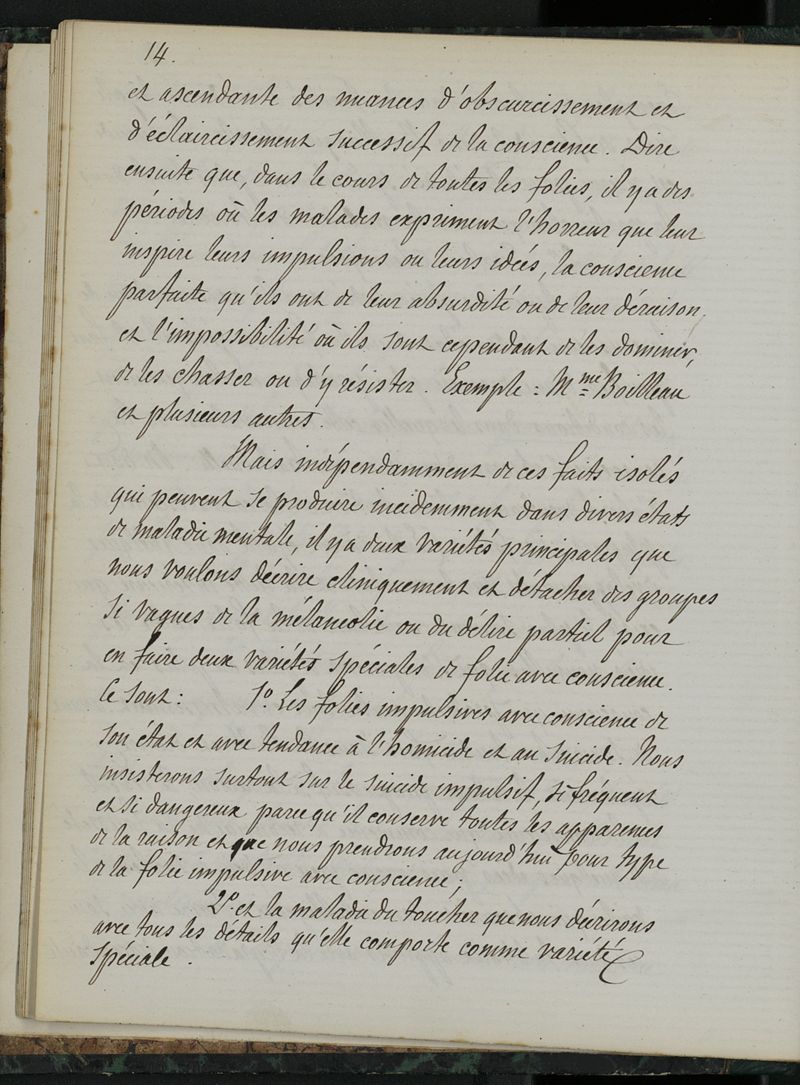 14.
et ascendante des nuances d'obscurcissement et
d'éclaircissement successif de la conscience. Dire
ensuite que, dans le cours de toutes les folies, il y a des
périodes où les malades expriment l'horreur que leur
inspire leurs impulsions ou leurs idées, la conscience
parfaite qu'ils ont de leur absurdité ou de leur déraison,
et l'impossibilité où ils sont cependant de les dominer,
de les chasser ou d'y résister. Exemple : Mme Boilleau
et plusieurs autres.
Mais indépendamment de ces faits isolés
qui peuvent se produire incidemment dans divers états
de maladie mentale, il y a deux variétés principales que
nous voulons décrire cliniquement et détacher des groupes
si vagues de la mélancolie ou du délire partiel pour
en faire deux variétés spéciales de folie avec conscience.
Ce sont : 1º. Les folies impulsives avec conscience de
son état et avec tendance à l'homicide et au suicide. Nous
insisterons surtout sur le suicide impulsif, si fréquent
et si dangereux parce qu'il conserve toutes les apparences
de la raison et que nous prendrons aujourd'hui pour type
de la folie impulsive avec conscience ;
2º. et la maladie du toucher que nous décrirons
avec tous les détails qu'elle comporte comme variété
spéciale.